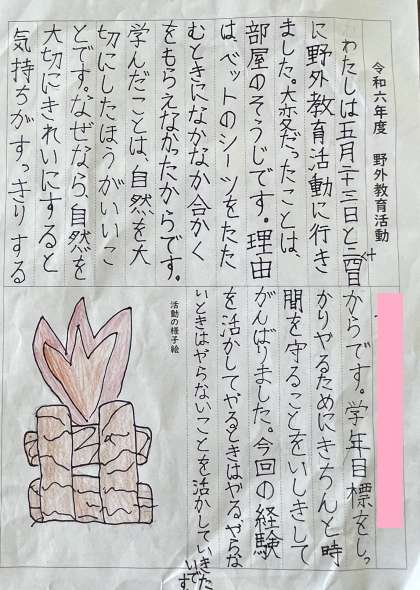 令和六年度　野外教育活動
わたしは五月二十三日と二十四日
に野外教育活動に行き
ました。大変だったことは、
部屋のそうじです。理由
は、ベットのシーツをたた
むときになかなか合かく
をもらえなかったからです。
学んだことは、自然を大
切にしたほうがいいこ
とです。なぜなら、自然を
大切にきれいにすると
気持ちがすっきりする
からです。学年目標をしっ
かりやるためにきちんと時
間を守ることをいしきして
がんばりました。今回の経験
を活かしてやるときはやるやらな
いときはやらないことを活かしていきた
いです
活動の様子絵